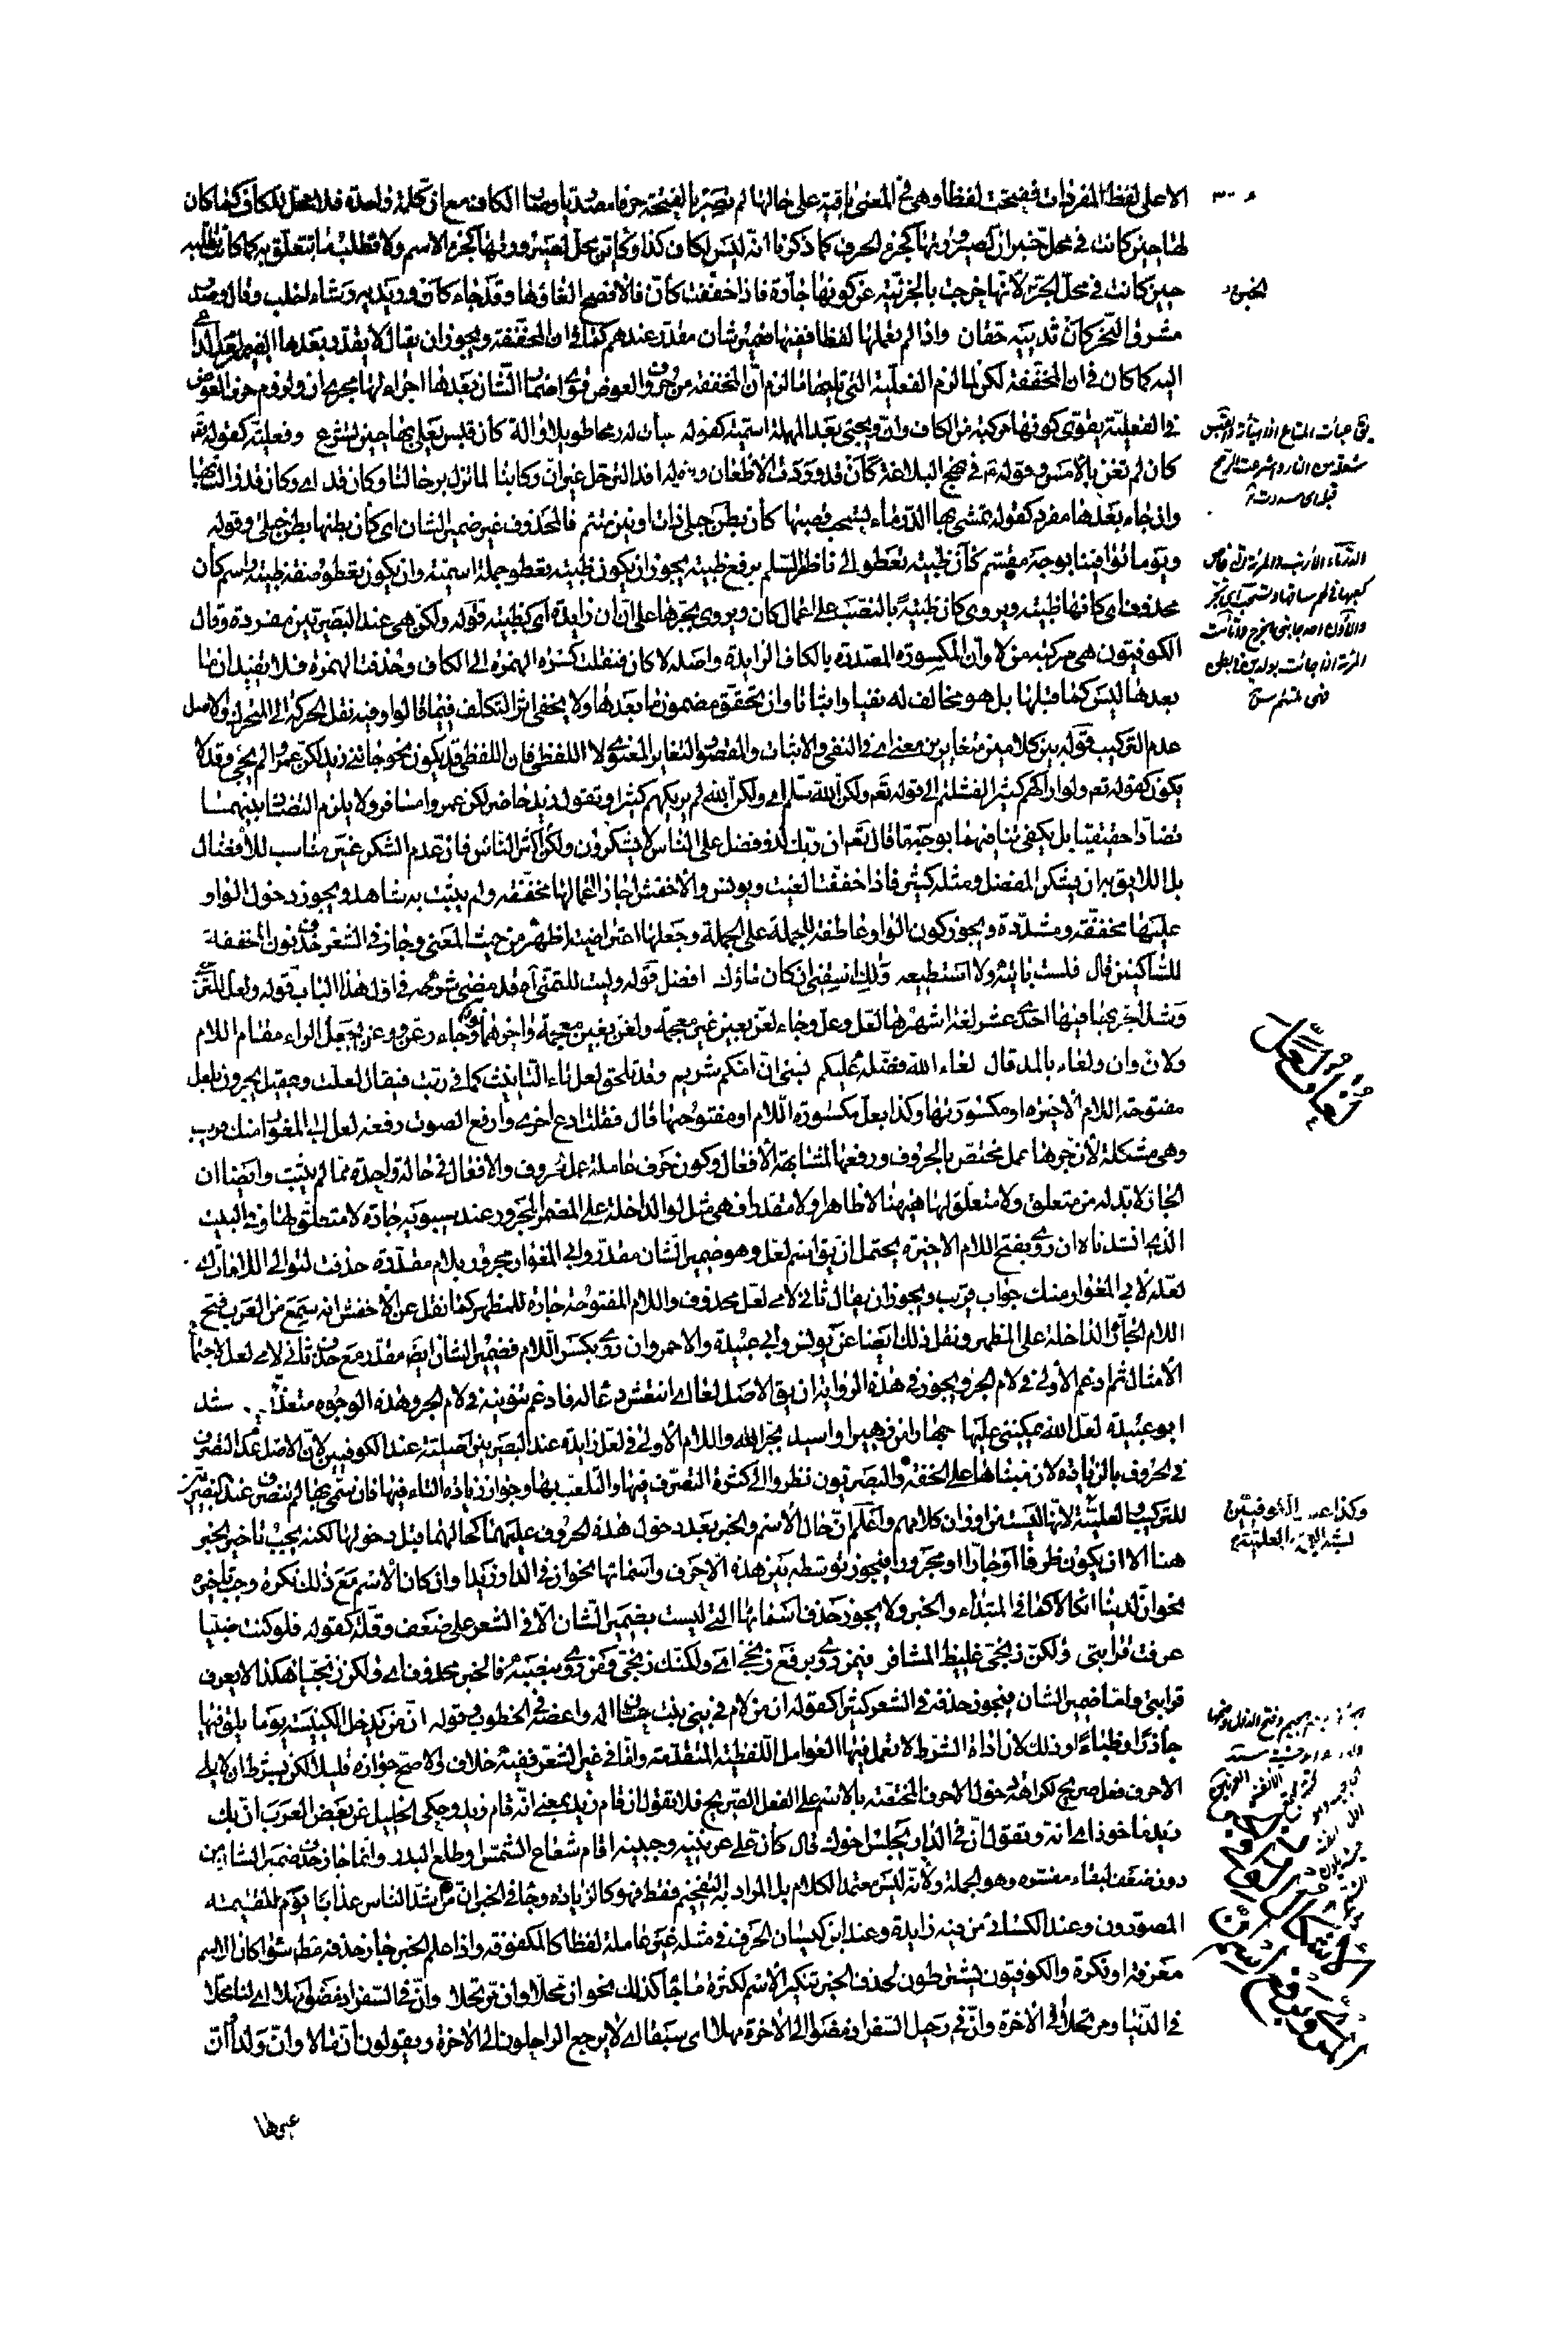 الا على لفظ المفردات ففتحت لفظا وهى فى المعنى باقية على حالها لم تصر بالفتحة حرفا مصدريا وصار الكاف مع ان كلمة واحدة فلا محل للكاف كما كان
لها حين كانت فى محل خبر ان لصيرورتها كجزء الحرف كما ذكرنا انه ليس لكان كذا وكاين محل لصيرورتها كجزء الاسم ولا تطلب ما تتعلق به كما كانت تطلبه
حين كانت فى محل الخبر لانها خرجت بالجزئية عن كونها جارة فاذا خففت كأن فالافصح الغاؤها وقد جاء كأن وريديه رشاء خلب وقال وصدر
مشرق النحر كأن ثدييه حقان واذا لم تعملها لفظا ففيها ضمير شان مقدر عندهم كما فى ان المخففة ويجوز ان يقال لا يقدر بعدها الضمير لعدم الداعى
اليه كما كان فى ان المخففة لكن لما لزم الفعلية التى تليها ما لزم ان المخففة من حروف العوض قوى اضمار الشان بعدها اجراء لها مجرى ان ولزوم حرف العوض
فى الفعلية يقوى كونها مركبة من الكاف وان ويجئ بعد المهملة اسمية كقوله عبأت له رمحا طويلا والة كأن قبس يعلى بها حين تشرع وفعلية كقوله تعم
كان لم تغن بالامس وقوله عم فى نهج البلاغة كأن قد وردت الاظعان وقوله افد الترحل غير ان ركابنا لما تزل برحالنا وكان قد اى وكان قد زالت بها
وان جاء بعدها مفرد كقوله تمشى بها الدرماء تسحب قصبها كأن بطن حبلى ذات اونين متئم فالمحذوف غير ضمير الشان اى كأن بطنها بطن حبلى وقوله
ويوما توافينا بوجه مقسم كأن ظبية تعطو الى ناضر السلم برفع ظبية يجوز ان يكون ظبية تعطو جملة اسمية وان يكون تعطو صفة ظبية واسم كأن
محذوف اى كانها ظبية ويروى كان ظبية بالنصب على اعمال كان ويروى بجرها على ان ان زايدة اى كظبية قوله ولكن هى عند البصريين مفردة وقال
الكوفيون هى مركبة من لا وان المكسورة المصدرة بالكاف الزايدة واصله لا كان فنقلت كسرة الهمزة الى الكاف وحذفت الهمزة فلا يفيد ان ما
بعدها ليس كما قبلها بل هو مخالف له نفيا واثباتا وان تحقق مضمون ما بعدها ولا يخفى اثر التكلف فيما قالوا وفيه نقل الحركة الى المتحرك والاصل
عدم التركيب قوله بين كلامين متغايرين معنى اى فى النفى والاثبات والمقصود التغاير المعنوى لا اللفظى فان اللفظى قد يكون نحو جاءنى زيد لكن عمرا لم يجئ وقد لا
يكون كقوله تعم ولو اراكهم كثيرا لفشلتم الى قوله تعم ولكن الله سلم اى ولكن الله لم يريكهم كثيرا وتقول زيد حاضر لكن عمروا مسافر ولا يلزم التضاد بينهما
تضادا حقيقيا بل يكفى تنافيهما بوجه ما قال تعم ان ربك لذو فضل على الناس لا يشكرون ولكن اكثر الناس فان عدم الشكر غير مناسب للافضال
بل اللايق به ان يشكر المفضل ومثله كثير فاذا خففت الغيت ويونس والاخفش اجازا اعمالها مخففة ولم يثبت به شاهد ويجوز دخول الواو
عليها مخففة ومشددة ويجوز كون الواو عاطفة للجملة على الجملة وجعلها اعتراضية اظهر من حيث المعنى وجاز فى الشعر حذف نون المخففة
للساكنين قال فلست بآتيه ولا استطيعه ولاك اسقنى ان كان ماؤك ذا فضل قوله وليت للتمنى اه قد مضى شرحه فى اول هذا الباب قوله ولعل للترجى
وشذ الجر بها فيها احدى عشر لغة اشهرها لعل وعل وجاء لعن بعين غير معجمة ولغن بغين معجمة واخرهما نون وجاء رعن وعن بجعل الراء مقام اللام
ولان وان ولعاء بالمد قال لعاء الله فضله عليكم بشئ ان امكم شريم وقد تلحق لعل تاء التانيث كما فى ربت فيقال لعلت وعقيل يجرون بلعل
مفتوحة اللام الاخيرة او مكسورتها وكذا بعل مكسورة اللام او مفتوحتها قال فقلت ادع اخرى وارفع الصوت رفعة لعل ابى المغوار منك قريب
وهى مشكلة لان جرها عمل مختص بالحروف ورفعها لمشابهة الافعال وكون حرف عاملة عمل الحروف والافعال فى حالة واحدة مما لم يثبت وايضا ان
الجار لا بد له من متعلق ولا متعلق لها ههنا لا ظاهرا ولا مقدرا فهى مثل لولا الداخلة على المضمر المجرور عند سيبويه جارة لا متعلق لها وفى البيت
الذى انشدناه ان روى بفتح اللام الاخيرة يحتمل ان يق اسم لعل وهو ضمير الشان مقدر وابى المغوار مجرور بلام مقدرة حذفت لتوالى اللامات اى
لعله لابى المغوار منك جواب قريب ويجوز ان يقال ثانى لامى لعل محذوف واللام المفتوحة جارة للمظهر كما نقل عن الاخفش انه سمع من العرب فتح
اللام الجارة الداخلة على المظهر ونقل ذلك ايضا عن يونس وابى عبيدة والاحمر وان روى بكسر اللام فضمير الشان ايضا مقدر مع حذف ثانى لامى لعل لاجتماع
الامثال ثم ادغم الاولى فى لام الجر ويجوز فى هذه الرواية ان يق الاصل لعا اى انتعش دعاء له فادغم تنوينه فى لام الجر وهذه الوجوه متعذرة فيما انشد
ابو عبيدة لعل الله يمكننى عليها جهارا من زهير او اسيد بجر الله واللام الاولى فى لعل زايدة عند البصريين اصلية عند الكوفيين لان الاصل عدم التصرف
فى الحروف بالزيادة لان مبناها على الخفة والبصريون نظروا الى كثرة التصرف فيها والتلعب بها وجواز زيادة التاء فيها فان سمى بها لم تنصرف عند البصريين
للتركيب والعلمية لانها ليست من اوزان كلامهم واعلم ان حال الاسم والخبر بعد دخول هذه الحروف عليهما كحالهما قبل دخولها لكنه يجب تاخير الخبر
هنا الا ان يكون ظرفا او جارا او مجرورا فيجوز توسطه بين هذه الاحرف واسمائها نحو ان فى الدار زيدا وان كان الاسم مع ذلك نكرة وجب تاخيره
نحو ان لدينا انكالا كما فى المبتداء والخبر ولا يجوز حذف اسمائها التى ليست بضمير الشان الا فى الشعر على ضعف وقلة كقوله فلو كنت ضبيا
عرفت قرابتى ولكن زنجى غليظ المشافر فيمن روى برفع زنجى اى ولكنك زنجى ومن روى بنصبه فالخبر محذوف اى ولكن زنجيا هكذا لا يعرف
قرابتى واما ضمير الشان فيجوز حذفه فى الشعر كثيرا كقوله ان من لام فى بنى بنت حسان المه واعصه فى الخطوب وقوله ان من يدخل الكنيسة يوما يلق فيها
جأذرا وظباء وذلك لان اداة الشرط لا تعمل فيها العوامل اللفظية المتقدمة واما فى غير الشعر ففيه خلاف والاصح جوازه قليلا لكن بشرط ان لا يلى
الاحرف فعل صريح لكراهة دخول الاحرف المختصة بالاسم على الفعل الصريح فلا تقول ان قام زيد بمعنى انه قام زيد وحكى الخليل عن بعض العرب ان بك
زيد ماخوذ اى انه وتقول ان فى الدار يجلس اخوك قال كأن على عرنينه وجبينه اقام شعاع الشمس او طلع البدر وانما جاز حذف ضمير الشان من
دون ضعف لبقاء مفسره وهو الجملة ولانه ليس معتمد الكلام بل المراد به التفخيم فقط فهو كالزيادة وجاء فى الخبر ان من اشد الناس عذابا يوم القيمة
المصورون وعند الكسائى من فيه زايدة وعند ابن كيسان الحرف فى مثله غير عاملة لفظا كالمكفوفة واذا علم الخبر جاز حذفه مط سواء كان الاسم
معرفة او نكرة والكوفيون يشترطون لحذف الخبر تنكير الاسم لكثرة ما جاء كذلك نحو ان محلا وان مرتحلا وان فى السفر اذ مضوا مهلا اى لنا محلا
فى الدنيا ومرتحلا الى الاخرة وان فى رحيل السفر اذ مضوا الى الاخرة مهلا اى سبقا اى لا يرجع الراحلون الى الاخرة ويقولون ان مالا وان ولدا ان
غيرها
لغات لعل
وكذا عند الكوفيين